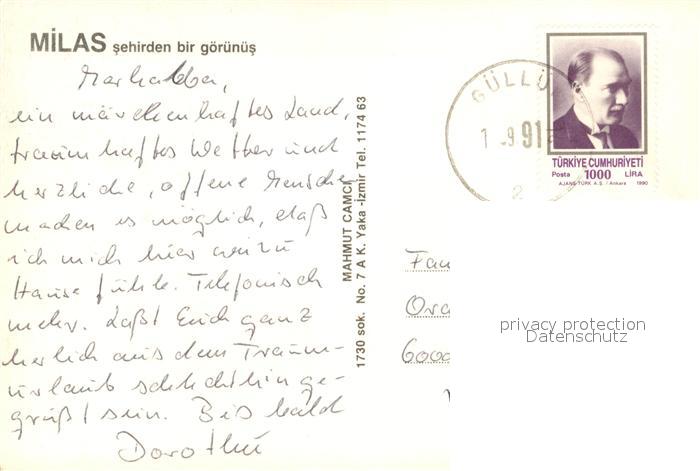 MİLAS şehirden bir görünüş
Merhaba,
ein märchenhaftes Land,
traumhaftes Wetter und
herzliche, offene Menschen
machen es möglich, daß
ich mich hier wie zu
Hause fühle. Telefonisch
mehr. Laßt Euch ganz
herlich aus dem Traum-
urlaub schlechthin ge-
grüßt sein. Bis bald
Dorothee
MAHMUT CAMCI
1730 sok. No. 7 A K. Yaka -İzmir Tel. 1174 63
GÜLLÜ
1 .9 91
2
TÜRKİYE CUMHURİYETİ
Posta 1000 LİRA
AJANS-TÜRK A.Ş. / Ankara 1990
Fam
Ora
6000
privacy protection
Datenschutz